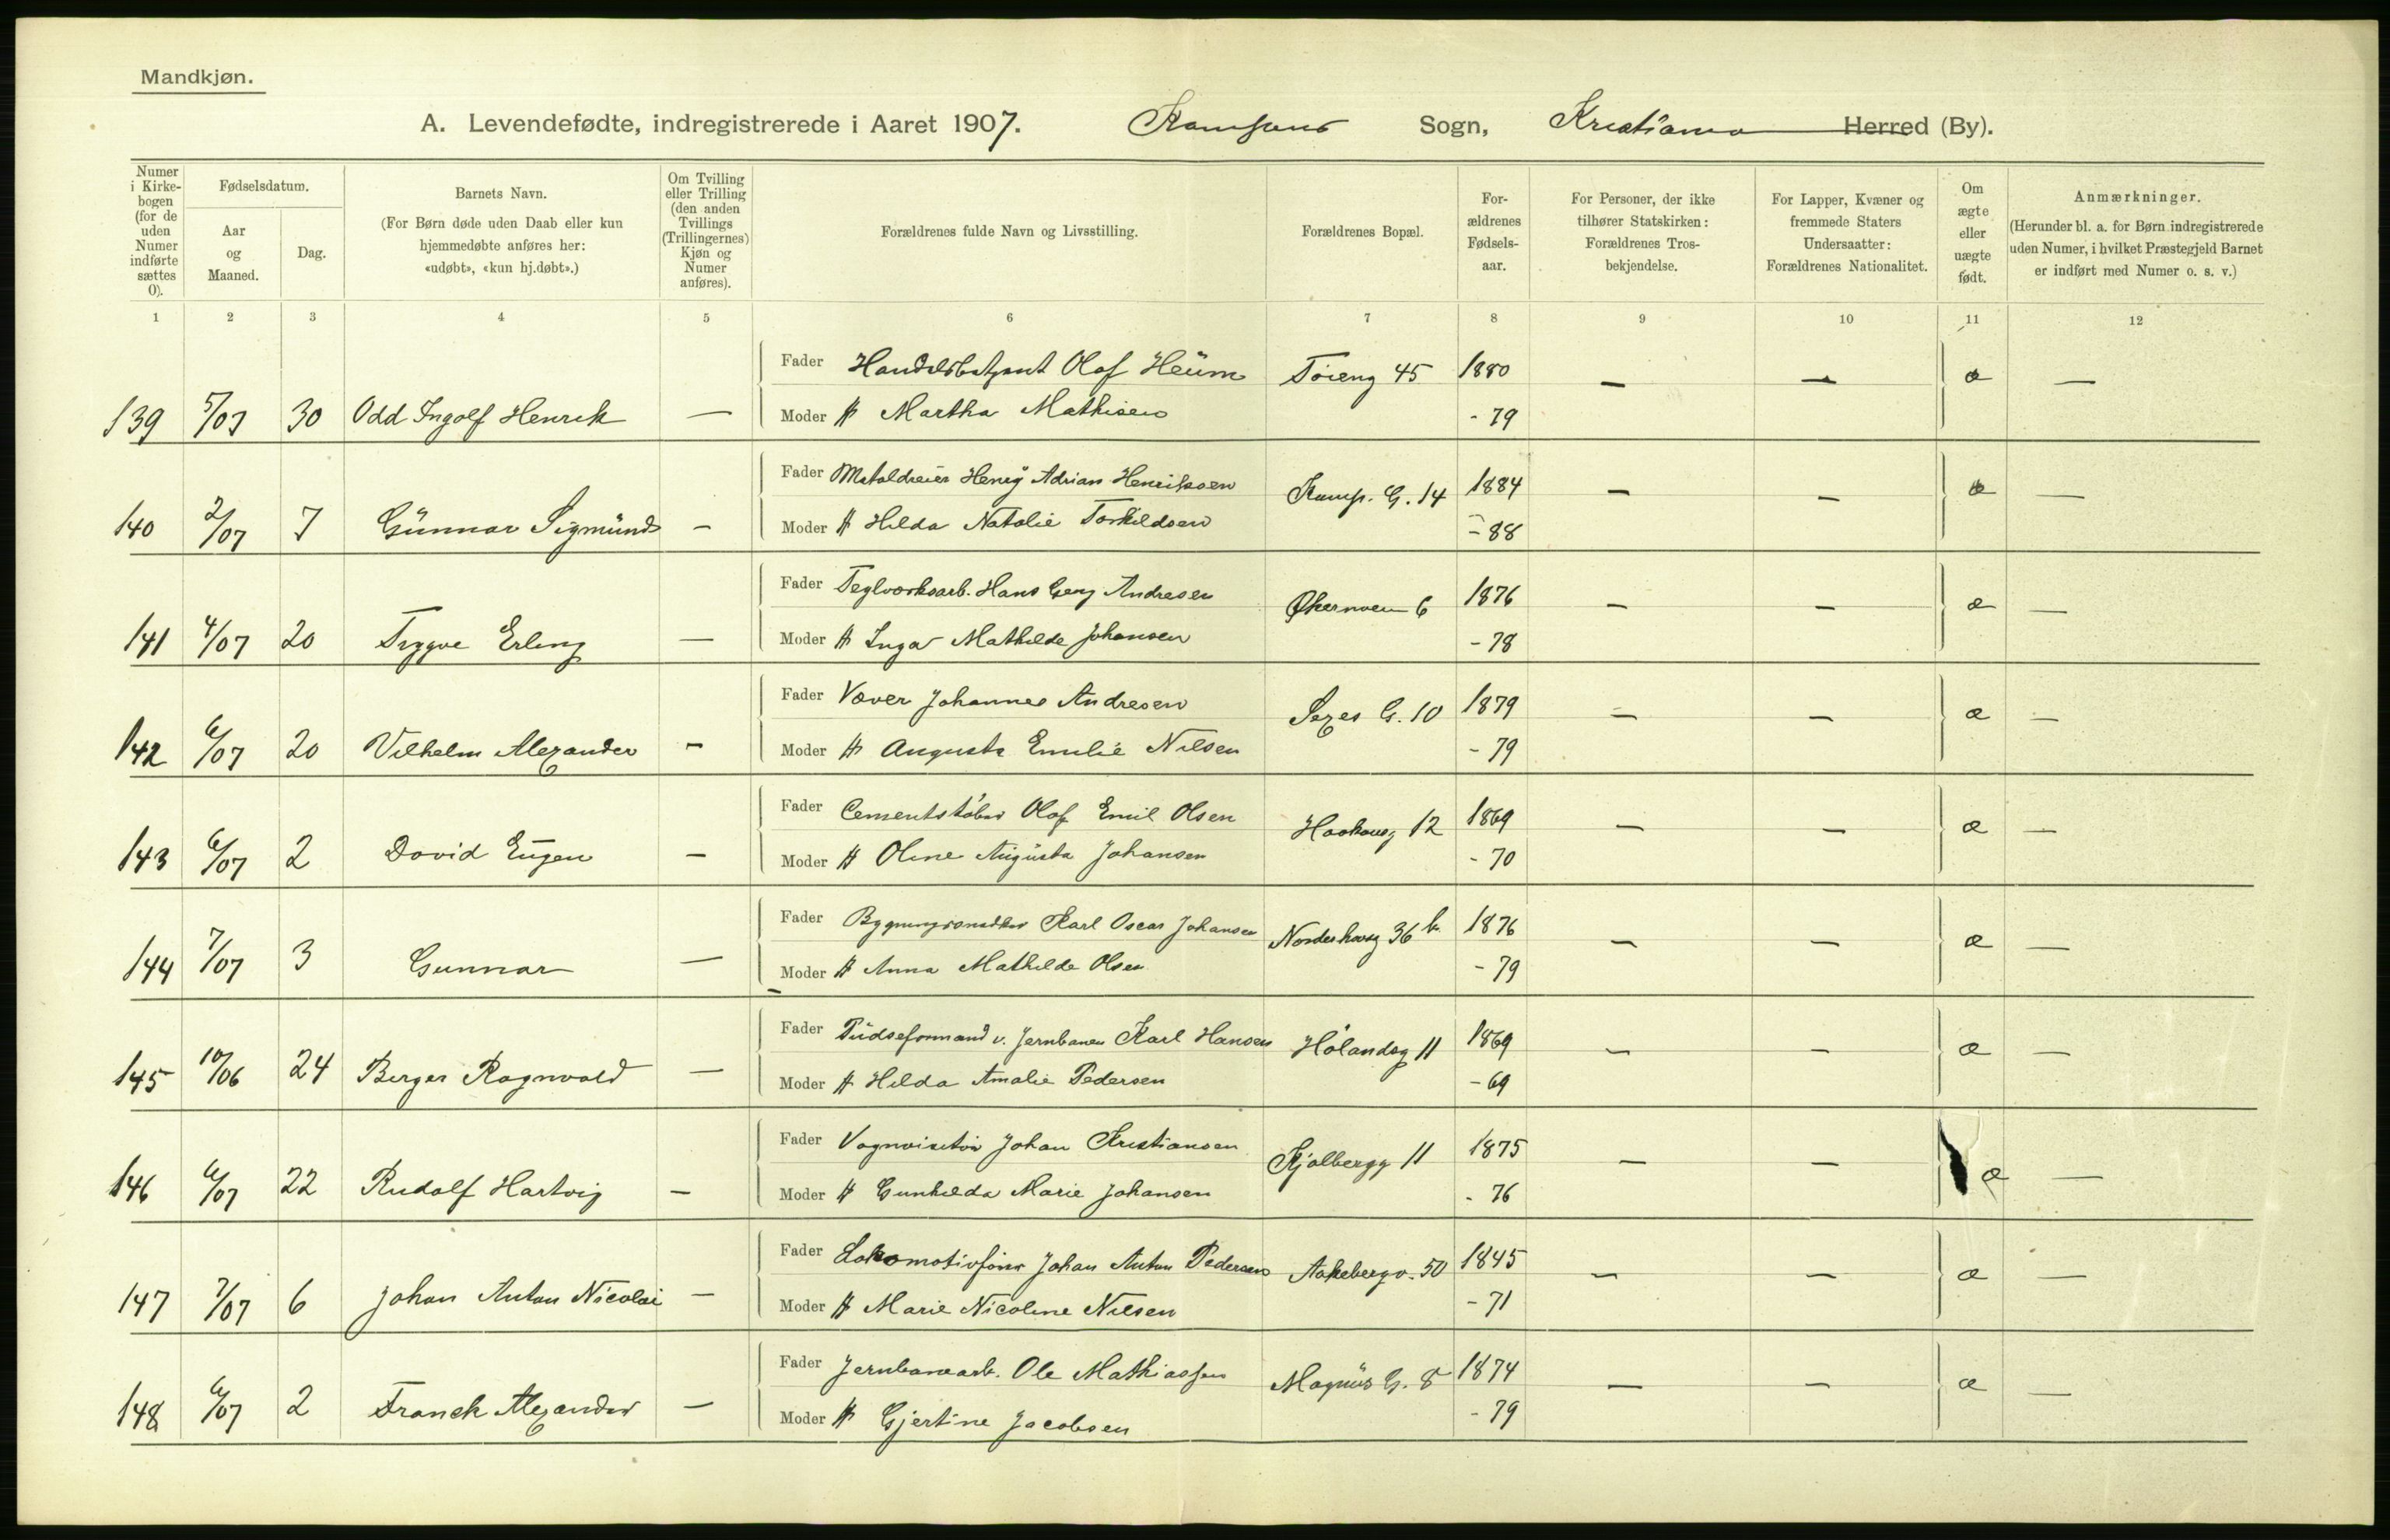 Mandkjøn.
A. Levendefødte, indregistrerede i Aaret 1907. Kampens Sogn, Kristiania Herred (By).
Numer i Kirkebogen (for de uden Numer indførte sættes 0).
Fødselsdatum.
Aar og Maaned.
Dag.
Barnets Navn.
(For Børn døde uden Daab eller kun hjemmedøbte anføres her: «udøbt», «kun hj.døbt».)
Om Tvilling eller Trilling (den anden Tvillings (Trillingernes) Kjøn og Numer anføres).
Forældrenes fulde Navn og Livsstilling.
Forældrenes Bopæl.
Forældrenes Fødselsaar.
For Personer, der ikke tilhører Statskirken: Forældrenes Trosbekjendelse.
For Lapper, Kvæner og fremmede Staters Undersaatter: Forældrenes Nationalitet.
Om ægte eller uægte født.
Anmærkninger.
(Herunder bl. a. for Børn indregistrerede uden Numer, i hvilket Præstegjeld Barnet er indført med Numer o. s. v.)
1 2 3 4 5 6 7 8 9 10 11 12
Fader Handelsbetjent Olaf Heüm Tøieng 45 1880 — — æ —
139 5/07 30 Odd Ingolf Henrik — Moder H Martha Mathisen - 79
Fader Metaldreier Henry Adrian Henriksen Kamp. G. 14 1884 — — æ —
140 2/07 7 Günnar Sigmünd — Moder H Hilda Natalie Torkildsen - 88
Fader Teglverksarb. Hans Georg Andresen Økernvein 6 1876 — — æ —
141 4/07 20 Trygve Erling — Moder H Inga Mathilde Johansen - 78
Fader Væver Johannes Andresen Sexes G. 10 1879 — — æ —
142 6/07 20 Vilhelm Alexander — Moder H Augusta Emilie Nilsen - 79
Fader Cementstøber Olaf Emil Olsen Haakonsg 12 1869 — — æ —
143 6/07 2 David Eügen — Moder H Oline Augüsta Johansen - 70
Fader Bygningssnedker Karl Oscar Johansen Norderhovsg 36 b 1876 — — æ —
144 7/07 3 Gunnar — Moder H Anna Mathilde Olsen - 79
Fader Püdseformand v. Jernbanen Karl Hansen Hølandsg 11 1869 — — æ —
145 10/06 24 Birger Ragnvald — Moder H Hilda Amalie Pedersen - 69
Fader Vognvisitør Johan Kristiansen Kjølbergg 11 1875 — — æ —
146 6/07 22 Rudolf Hartvig — Moder H Gunhilda Marie Johansen - 76
Fader Lokomotivfører Johan Anton Pedersen Aakebergv. 50 1845 — — æ —
147 7/07 6 Johan Anton Nicolai — Moder H Marie Nicoline Nilsen - 71
Fader Jernbanearb. Ole Mathiassen Magnüs G. 8 1874 — — æ —
148 6/07 2 Franck Alexander — Moder H Gjertine Jacobsen - 79